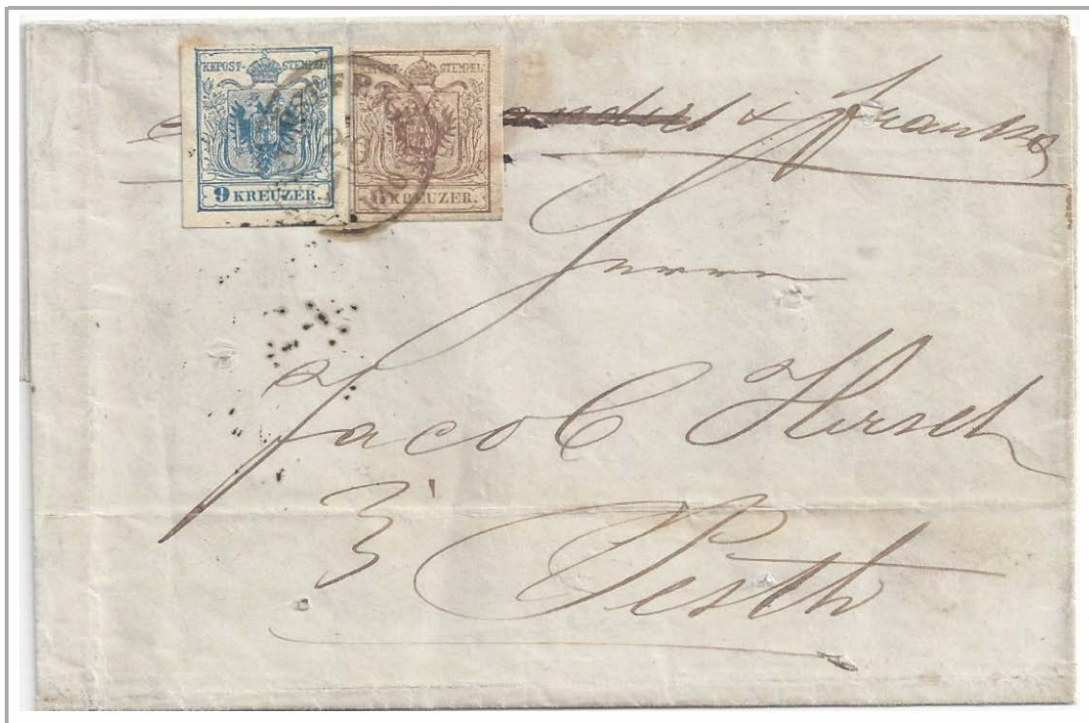 KKPOST-STEMPEL
9 KREUZER.
STEMPEL
6 KREUZER.
Franko
Herrn
Jacob Hirsch
Pesth